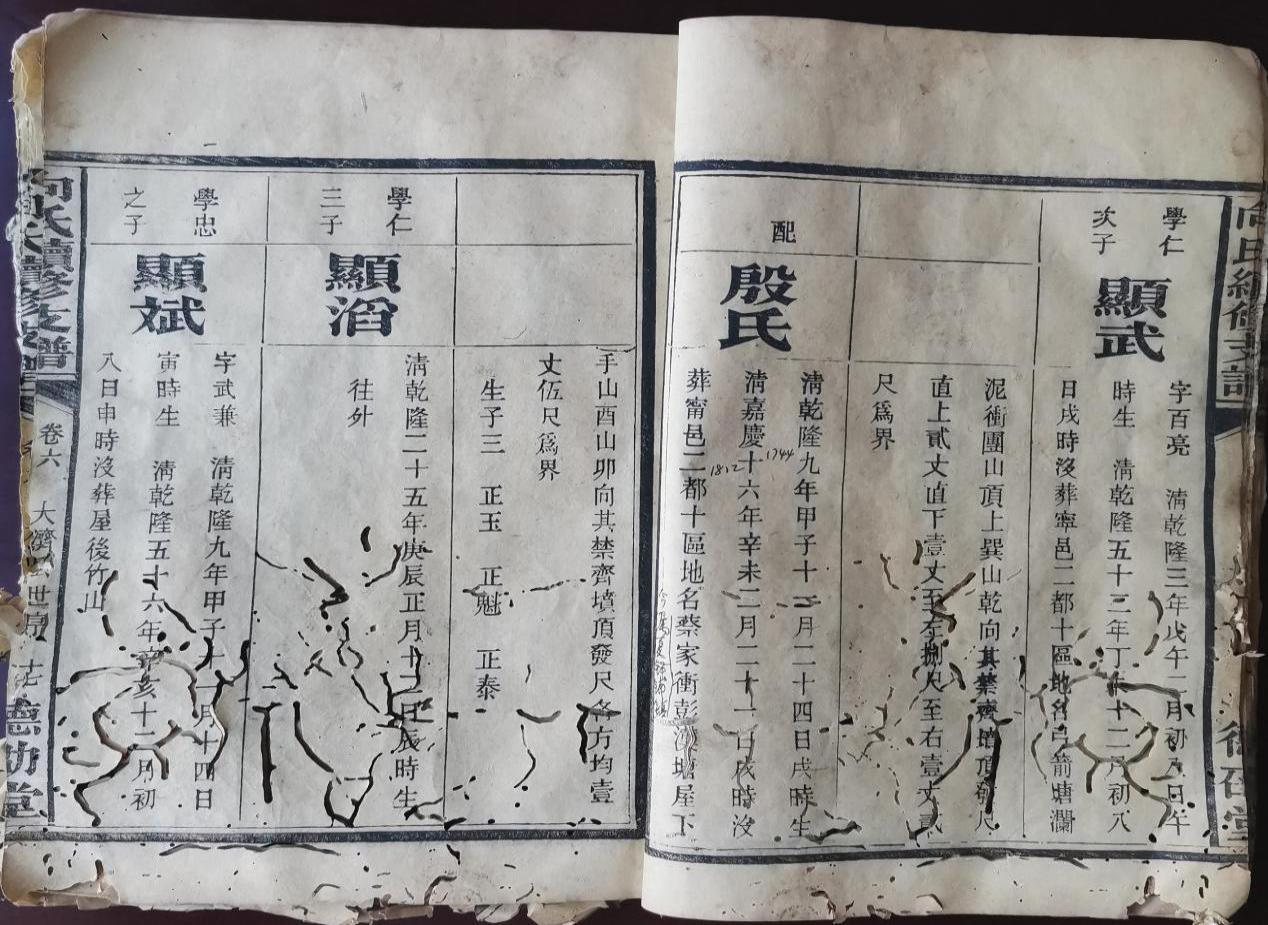 學仁
次子
顯武
字百亮 清乾隆三年戊午二月初八日午
時生 清乾隆五十三年丁 十二月初八
日戌時沒葬寧邑二都十區地名 箭塘瀾
泥衝團山頂上巽山乾向其禁齊墳頂發尺
直上貳丈直下壹丈至左捌尺至右壹丈貳
尺爲界
配
殷氏
清乾隆九年甲子十二月二十四日戌時生
1744
清嘉慶十六年辛未二月二十 日戌時沒
1812
葬甯邑二都十區地名蔡家衝彭 塘屋下
手山酉山卯向其禁齊墳頂發尺各方均壹
丈伍尺爲界
生子三 正玉 正魁 正泰
學仁
三子
顯滔
清乾隆二十五年庚辰正月十二日辰時生
往外
學忠
之子
顯斌
字武兼 清乾隆九年甲子十一月十四日
寅時生 清乾隆五十六年辛亥十二月初
八日申時沒葬屋後竹山
向氏續修支譜
卷六